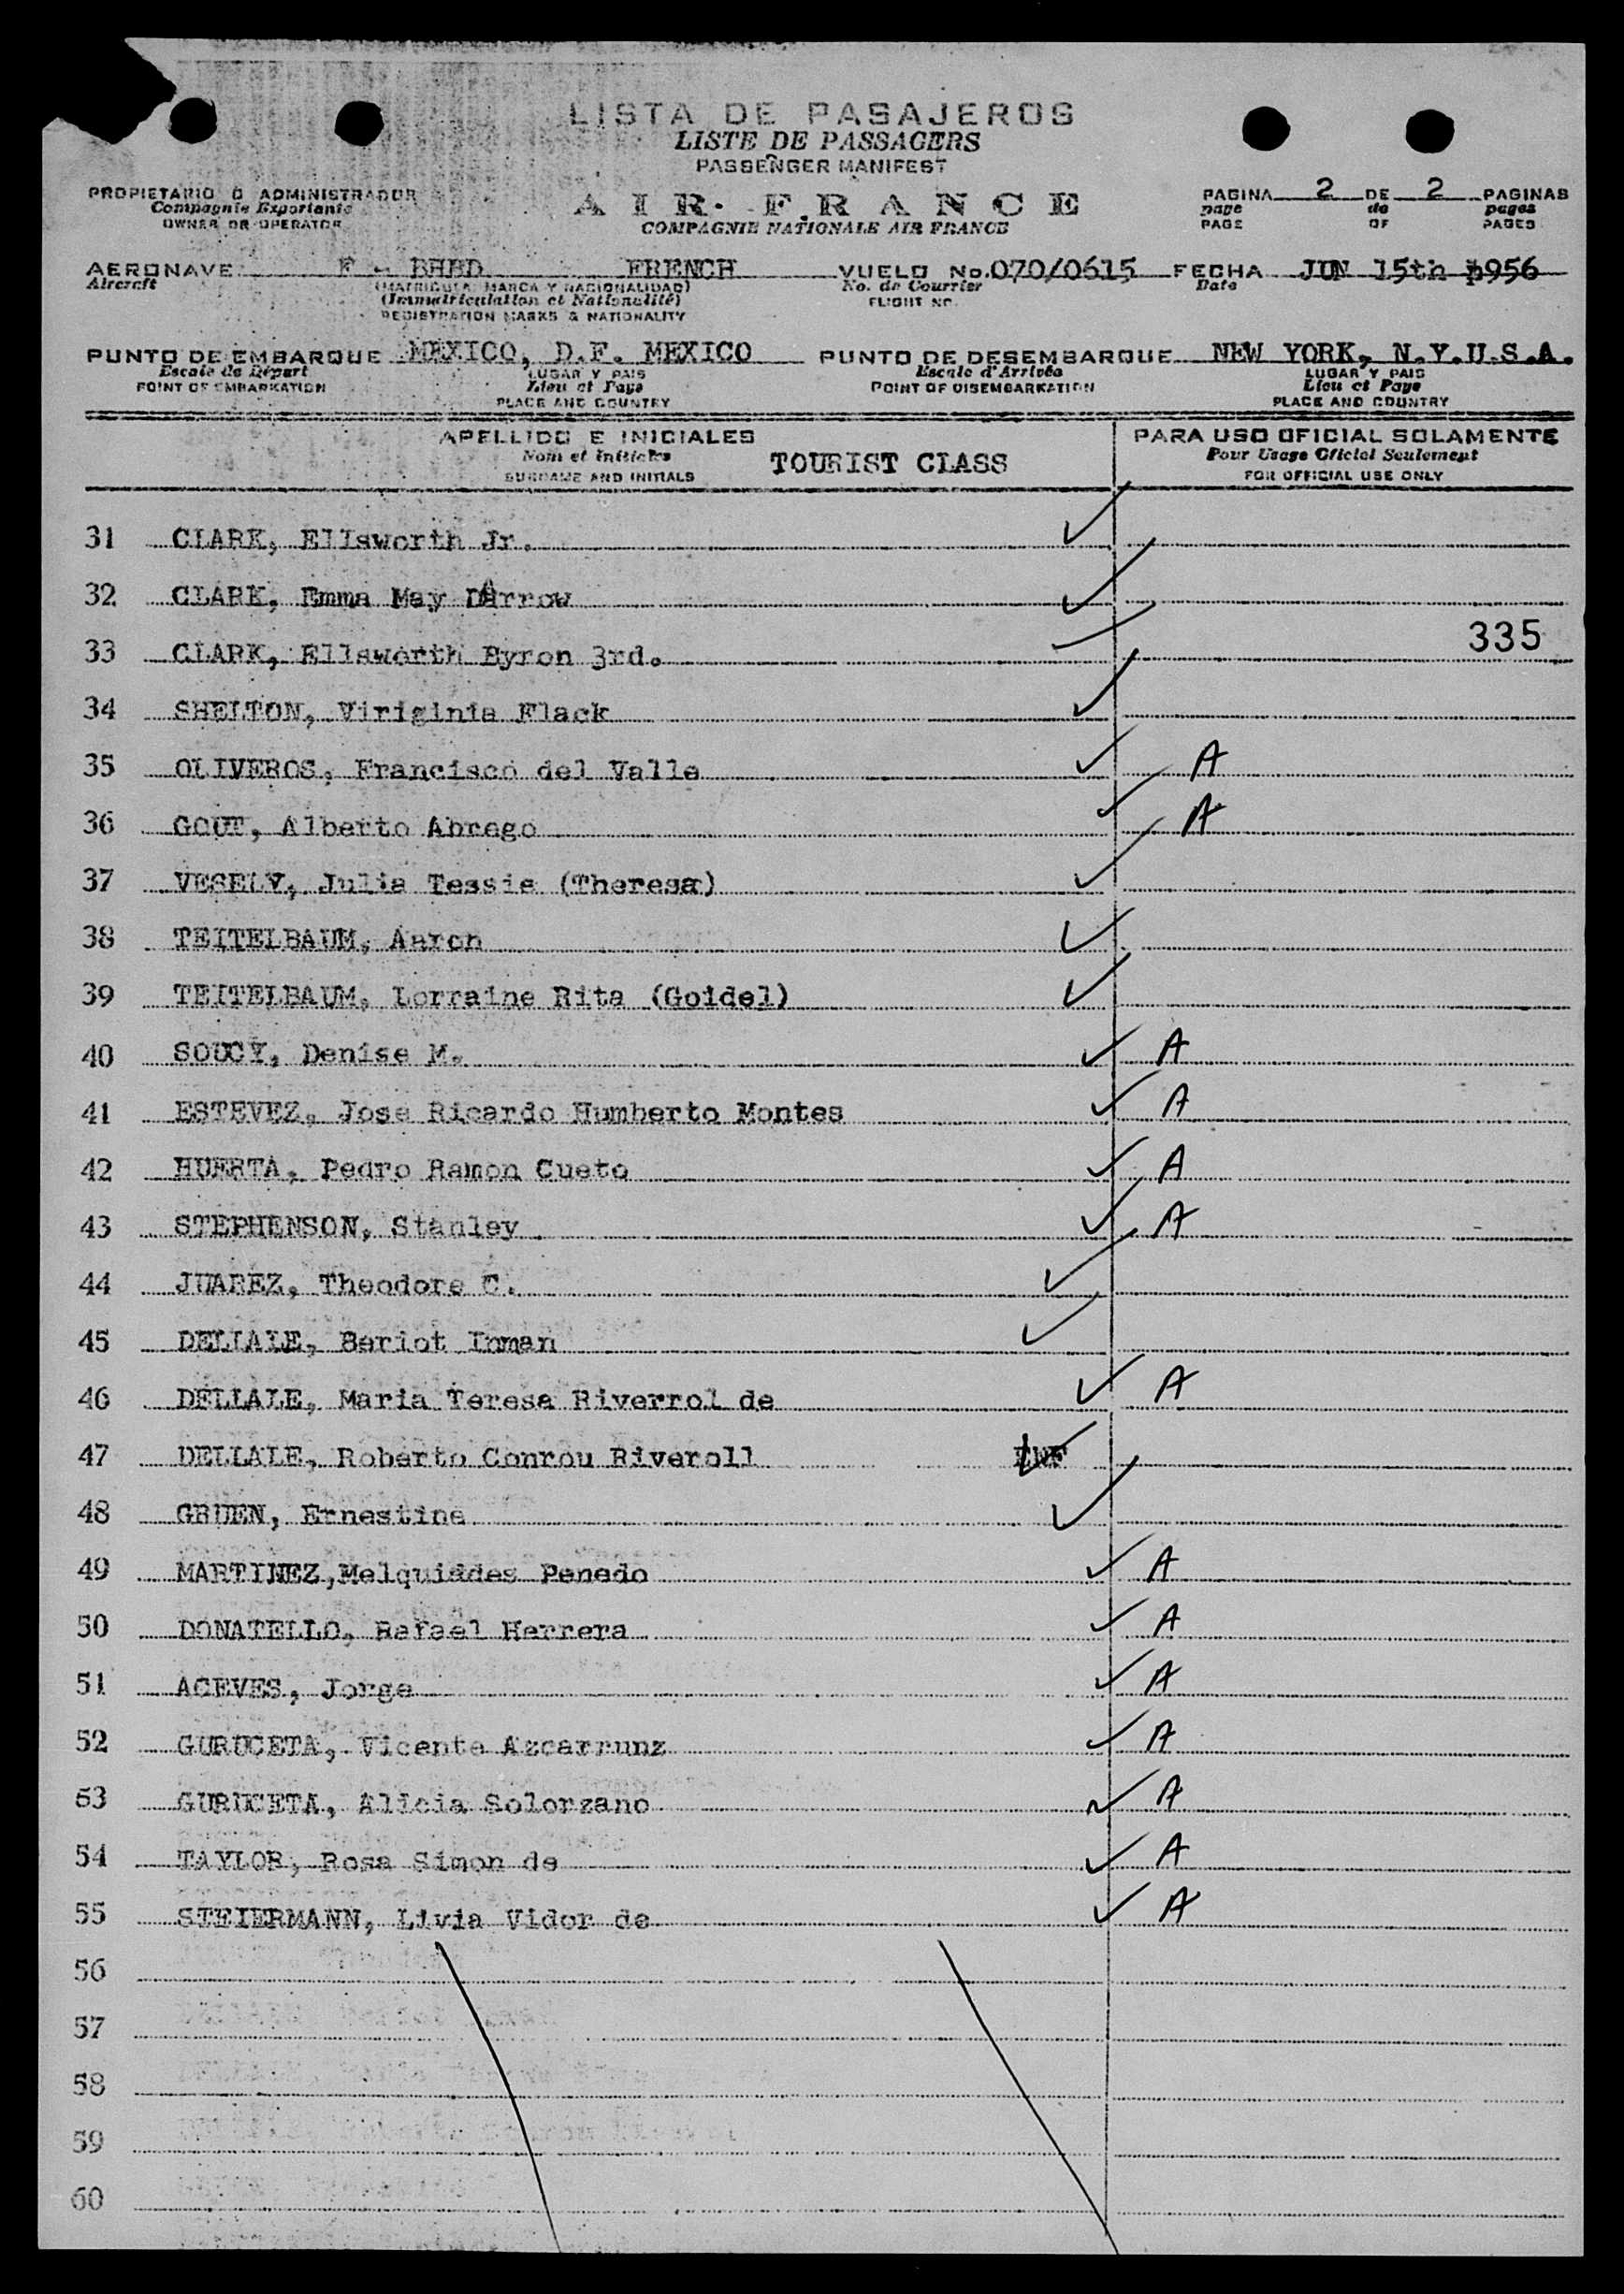 LISTA DE PASAJEROS
LISTE DE PASSAGERS
PASSENGER MANIFEST
AIR FRANCE
COMPAGNIE NATIONALE AIR FRANCE
PROPIETARIO O ADMINISTRADOR
Compagnie Exportante
OWNER OR OPERATOR
PAGINA 2 DE 2 PAGINAS
page de pages
PAGE OF PAGES
AERONAVE F - BHBD FRENCH VUELO No. 070/0615 FECHA JUN 15th 1956
Aircraft (MATRICULA, MARCA Y NACIONALIDAD) No. de Courrier Date
(Immatriculation et Nationalité) FLIGHT NO.
REGISTRATION MARKS & NATIONALITY
PUNTO DE EMBARQUE MEXICO, D.F. MEXICO PUNTO DE DESEMBARQUE NEW YORK, N.Y.U.S.A.
Escale de Départ LUGAR Y PAIS Escale d'Arrivée LUGAR Y PAIS
POINT OF EMBARKATION Lieu et Pays POINT OF DISEMBARKATION Lieu et Pays
PLACE AND COUNTRY PLACE AND COUNTRY
APELLIDO E INICIALES PARA USO OFICIAL SOLAMENTE
Nom et initiales TOURIST CLASS Pour Usage Oficiel Seulement
SURNAME AND INITIALS FOR OFFICIAL USE ONLY
31 CLARK, Ellsworth Jr. ✓
32 CLARK, Emma May Darrow ✓
335
33 CLARK, Ellsworth Byron 3rd.
34 SHELTON, Viriginia Flack ✓
35 OLIVEROS, Francisco del Valle ✓ A
36 GOUT, Alberto Abrego ✓ A
37 VESELY, Julia Tessie (Theresa) ✓
38 TEITELBAUM, Aaron ✓
39 TEITELBAUM, Lorraine Rita (Goidel) ✓
40 SOUCY, Denise M. ✓ A
41 ESTEVEZ, Jose Ricardo Humberto Montes ✓ A
42 HUERTA, Pedro Ramon Cueto ✓ A
43 STEPHENSON, Stanley ✓ A
44 JUAREZ, Theodore C. ✓
45 DELIALE, Beriot Inman ✓
46 DELIALE, Maria Teresa Riverrol de ✓ A
47 DELIALE, Roberto Conrou Riveroll INF ✓
48 GRUEN, Ernestine ✓
49 MARTINEZ, Melquiades Penedo ✓ A
50 DONATELLO, Rafael Herrera ✓ A
51 ACEVES, Jorge ✓ A
52 GURUCETA, Vicente Azcarrunz ✓ A
53 GURUCETA, Alicia Solorzano ✓ A
54 TAYLOR, Rosa Simon de ✓ A
55 STEIERMANN, Livia Vidor de ✓ A
56
57
58
59
60